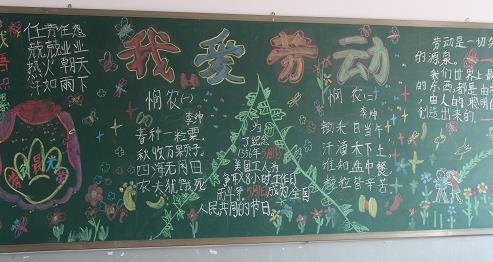 任劳任怨
兢兢业业
热火朝天
汗如雨下
我爱劳动
悯农(一)
李绅
春种一粒粟
秋收万颗子
四海无闲田
农夫犹饿死
为
了纪念
1886年5月1日
美国工人为
争取8小时工作日
而斗争 5月1日成为全国
人民共同的节日
悯农(二)
李绅
锄禾日当午
汗滴禾下土
谁知盘中餐
粒粒皆辛苦
劳动是一切
的源泉。
我们世界上最
的东西,都是由劳
,由人的聪明
创造出来的。